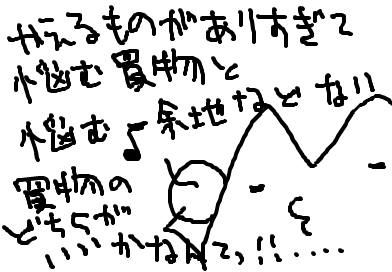 かえるものがありすぎて
悩む買物と
悩む余地などない
買物の
どちらが
いいかなんてっ!!.....